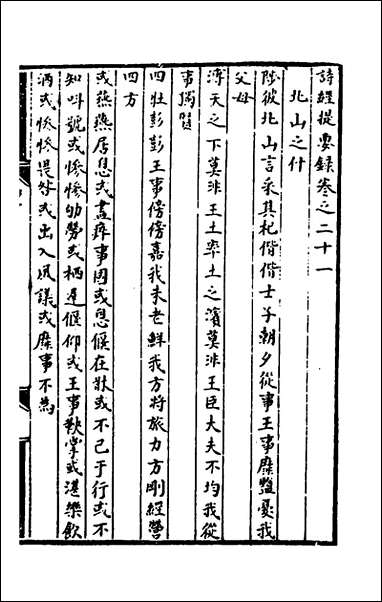 詩經提要錄卷之二十一
北山之什
陟彼北山言采其杞偕偕士子朝夕從事王事靡盬憂我
父母
溥天之下莫非王土率土之濱莫非王臣大夫不均我從
事獨賢
四牡彭彭王事傍傍嘉我未老鮮我方將旅力方剛經營
四方
或燕燕居息或盡瘁事國或息偃在牀或不已于行或不
知叫號或慘慘劬勞或栖遲偃仰或王事鞅掌或湛樂飲
酒或慘慘畏咎或出入風議或靡事不為